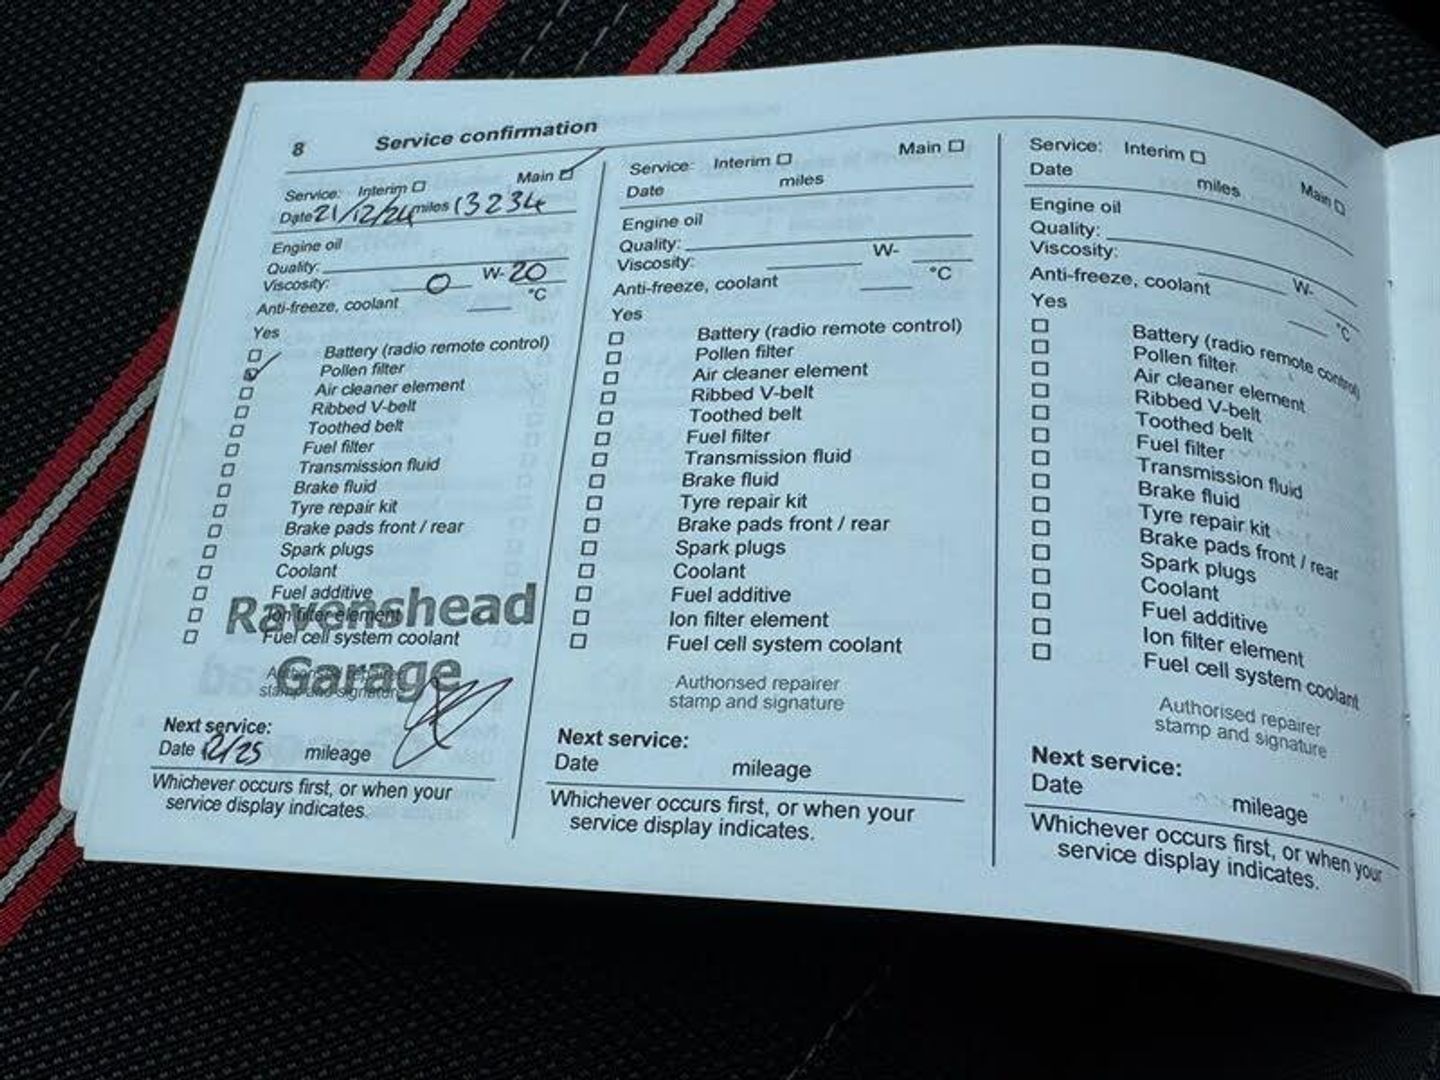 8 Service confirmation
Service: Interim Main
Date 21/12/24 miles 13234
Engine oil
Quality:
Viscosity: 0 W-20
Anti-freeze, coolant °C
Yes
Battery (radio remote control)
Pollen filter
Air cleaner element
Ribbed V-belt
Toothed belt
Fuel filter
Transmission fluid
Brake fluid
Tyre repair kit
Brake pads front / rear
Spark plugs
Coolant
Fuel additive
Ravenshead
Ion filter element
Fuel cell system coolant
Garage
Authorised repairer
stamp and signature
Next service:
Date 12/25 mileage
Whichever occurs first, or when your
service display indicates.
Service: Interim Main
Date miles
Engine oil
Quality:
Viscosity: W-
Anti-freeze, coolant °C
Yes
Battery (radio remote control)
Pollen filter
Air cleaner element
Ribbed V-belt
Toothed belt
Fuel filter
Transmission fluid
Brake fluid
Tyre repair kit
Brake pads front / rear
Spark plugs
Coolant
Fuel additive
Ion filter element
Fuel cell system coolant
Authorised repairer
stamp and signature
Next service:
Date mileage
Whichever occurs first, or when your
service display indicates.
Service: Interim Main
Date miles
Engine oil
Quality:
Viscosity: W-
Anti-freeze, coolant °C
Yes
Battery (radio remote control)
Pollen filter
Air cleaner element
Ribbed V-belt
Toothed belt
Fuel filter
Transmission fluid
Brake fluid
Tyre repair kit
Brake pads front / rear
Spark plugs
Coolant
Fuel additive
Ion filter element
Fuel cell system coolant
Authorised repairer
stamp and signature
Next service:
Date mileage
Whichever occurs first, or when your
service display indicates.